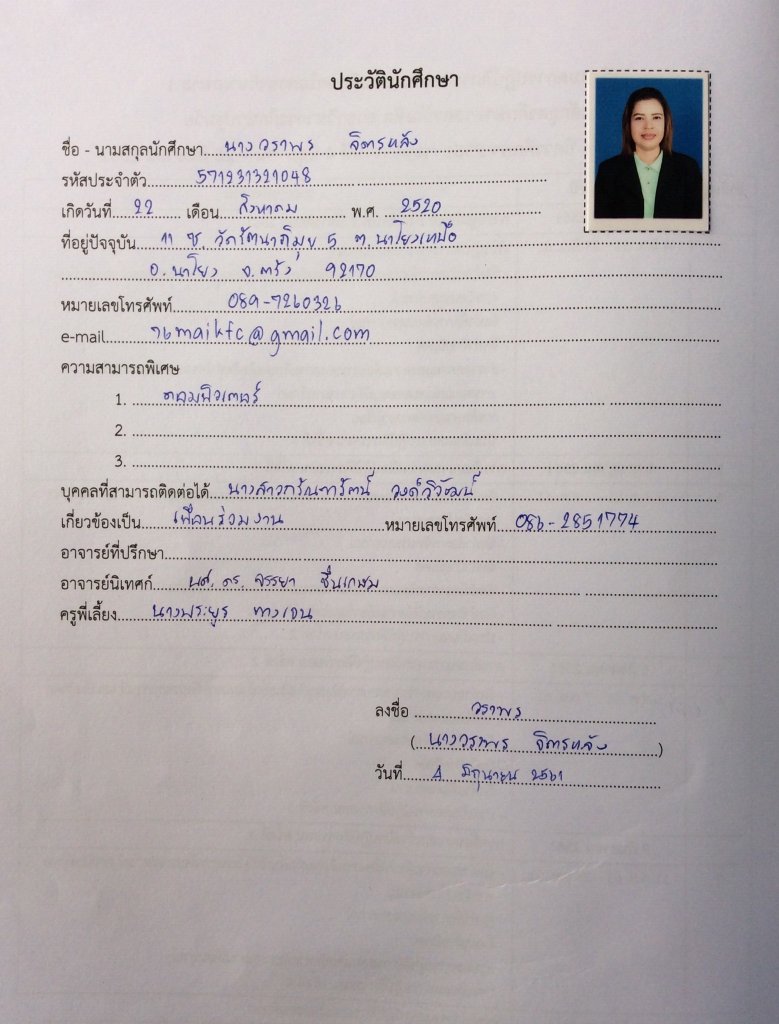 ประวัตินักศึกษา
ชื่อ - นามสกุลนักศึกษา นางวราพร จิตรหลัง
รหัสประจำตัว 571231321048
เกิดวันที่ 22 เดือน สิงหาคม พ.ศ. 2520
ที่อยู่ปัจจุบัน 11 ซ. วัดรัตนาภิมุข 5 ต. นาโยงเหนือ
อ. นาโยง จ. ตรัง 92170
หมายเลขโทรศัพท์ 089-7260326
e-mail maikfc@gmail.com
ความสามารถพิเศษ
1. คอมพิวเตอร์
2.
3.
บุคคลที่สามารถติดต่อได้ นางสาวกรัณฑรัตน์ วงศ์วิวัฒน์
เกี่ยวข้องเป็น เพื่อนร่วมงาน หมายเลขโทรศัพท์ 086-2851774
อาจารย์ที่ปรึกษา
อาจารย์นิเทศก์ ผศ. ดร. จรรยา ชื่นเกษม
ครูพี่เลี้ยง นางพระยูร
ลงชื่อ วราพร
( นางวราพร จิตรหลัง )
วันที่ 4 มิถุนายน 2561